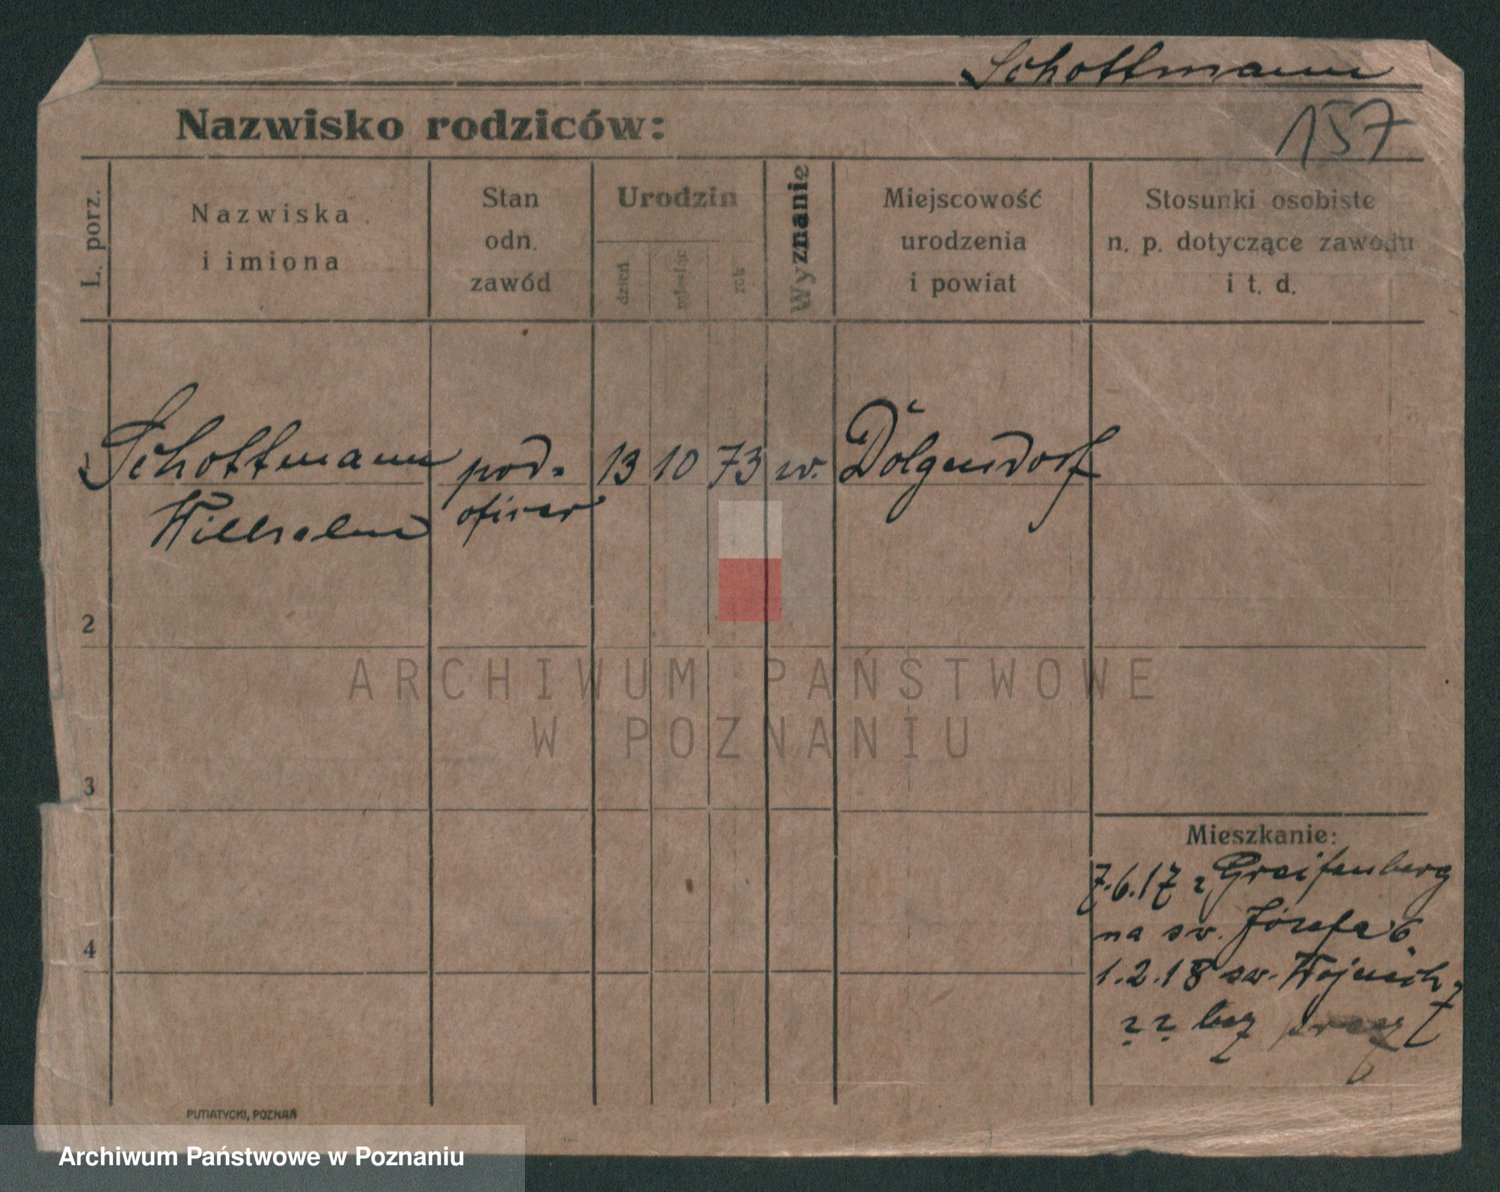 Schottmann
157
Nazwisko rodziców:
L. porz.
Nazwiska
i imiona
Stan
odn.
zawód
Urodzin
dzień
miesiąc
rok
Wyznanie
Miejscowość
urodzenia
i powiat
Stosunki osobiste
n. p. dotyczące zawodu
i t. d.
1 Schottmann pod- 13 10 73 w. Dölgendorf
Wilhelm oficer
2
ARCHIWUM PAŃSTWOWE
W POZNANIU
3
Mieszkanie:
7.6.17 z Greifenberg
na św. Józefa 6
4
1.2.18 św. Wojciech 7
bez
PUTIATYCKI, POZNAŃ
Archiwum Państwowe w Poznaniu